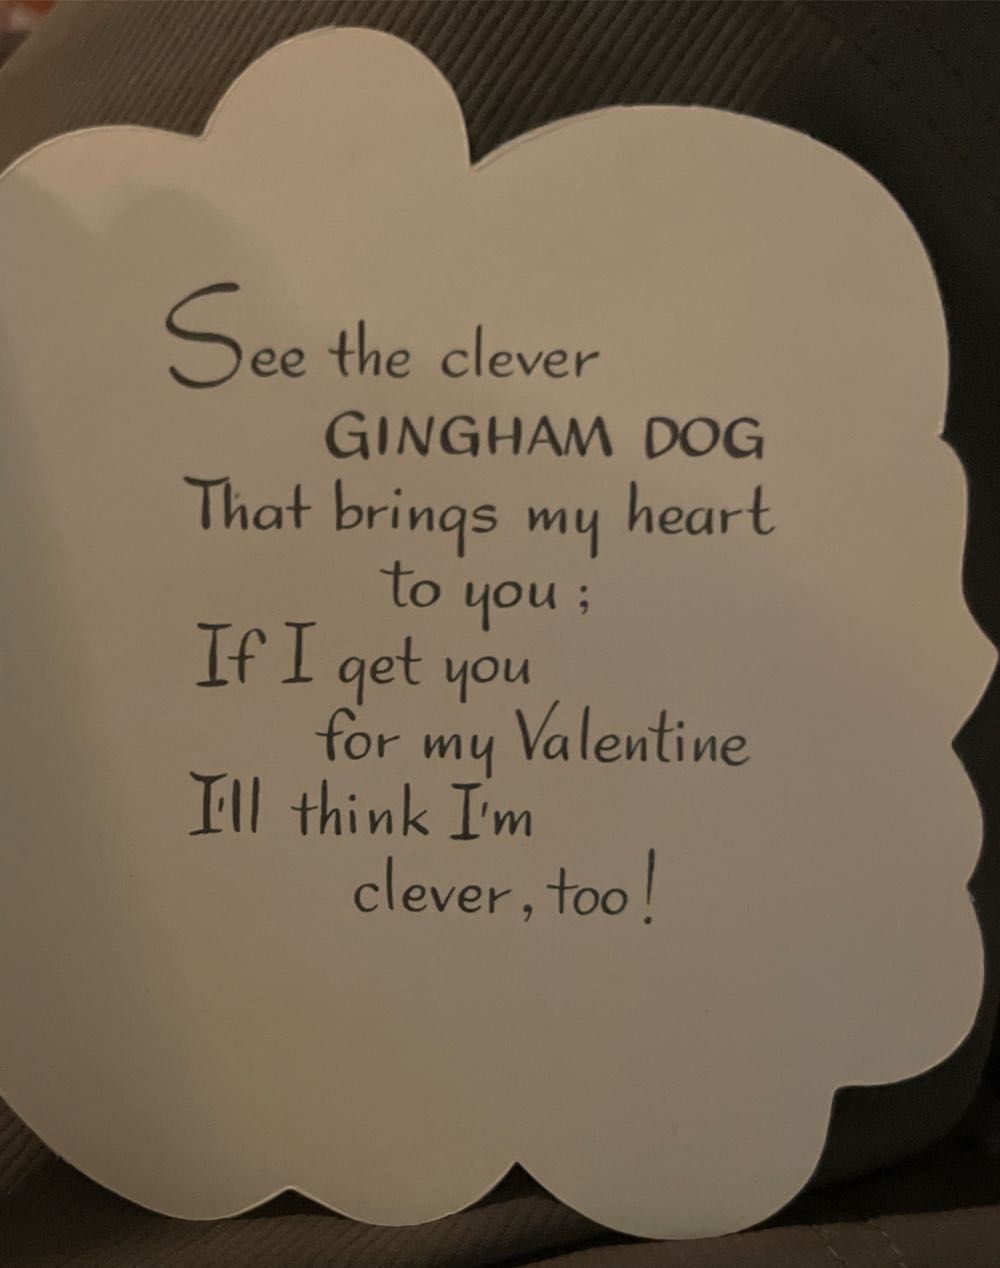 See the clever
GINGHAM DOG
That brings my heart
to you;
If I get you
for my Valentine
I'll think I'm
clever, too!